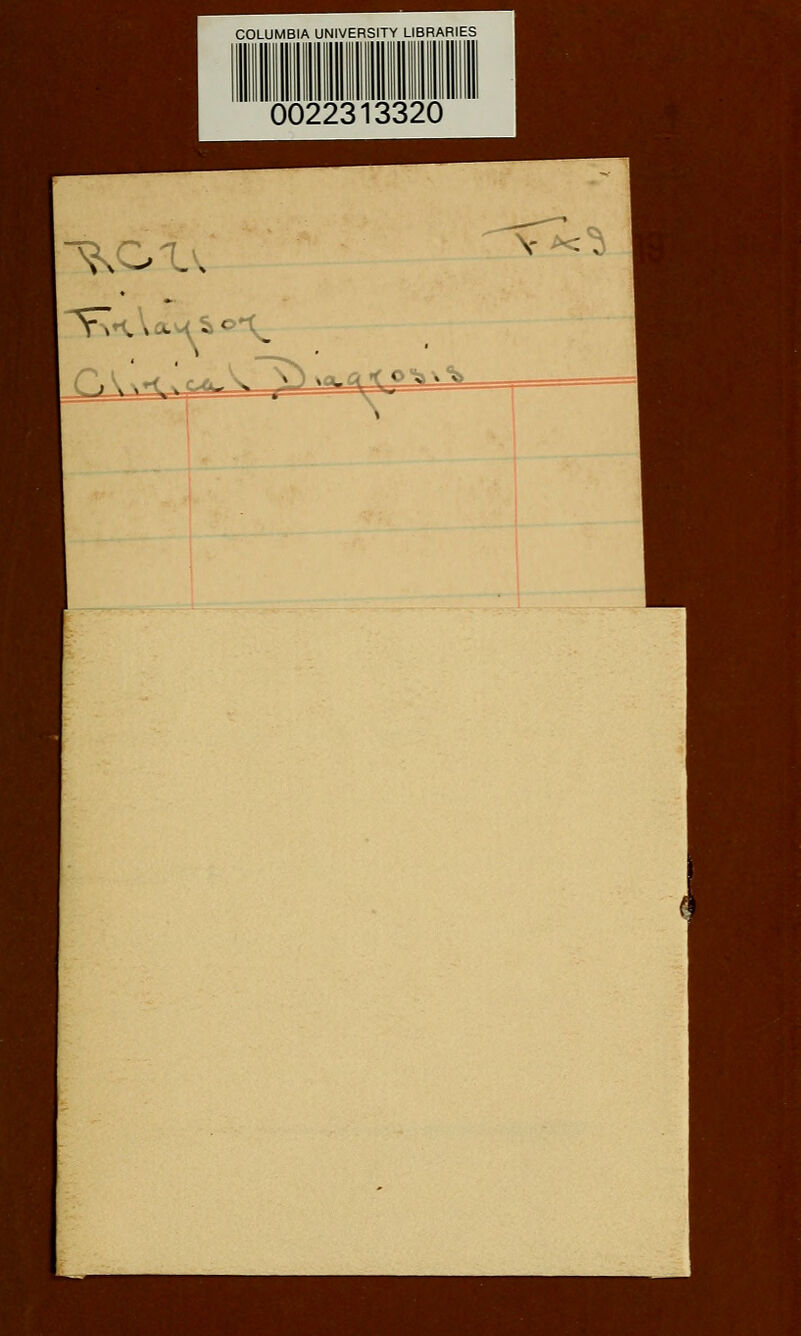 COLUMBIA UNIVERSITY LIBRARIES
0022313320
RC71
Finlayson
Clinical Diagnosis